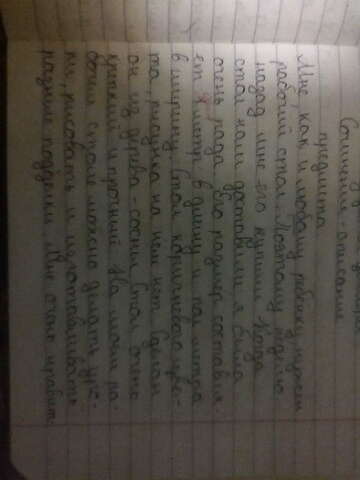 Сочинение-описание
предмета
Мне, как и любому ребёнку нужен
рабочий стол. Поэтому неделю
назад мне его купили. Когда
стол нам доставили я была
очень рада. Его размер составля
ет метр в длину и пол метра
в ширину. Стол коричневого цве-
та, рисунка на нём нет. Сделан
он из дерева - сосны. Стол очень
крепкий и прочный. На моём ра-
бочем столе можно делать уро-
ки, рисовать и изготавливать
разные поделки. Мне очень нравит